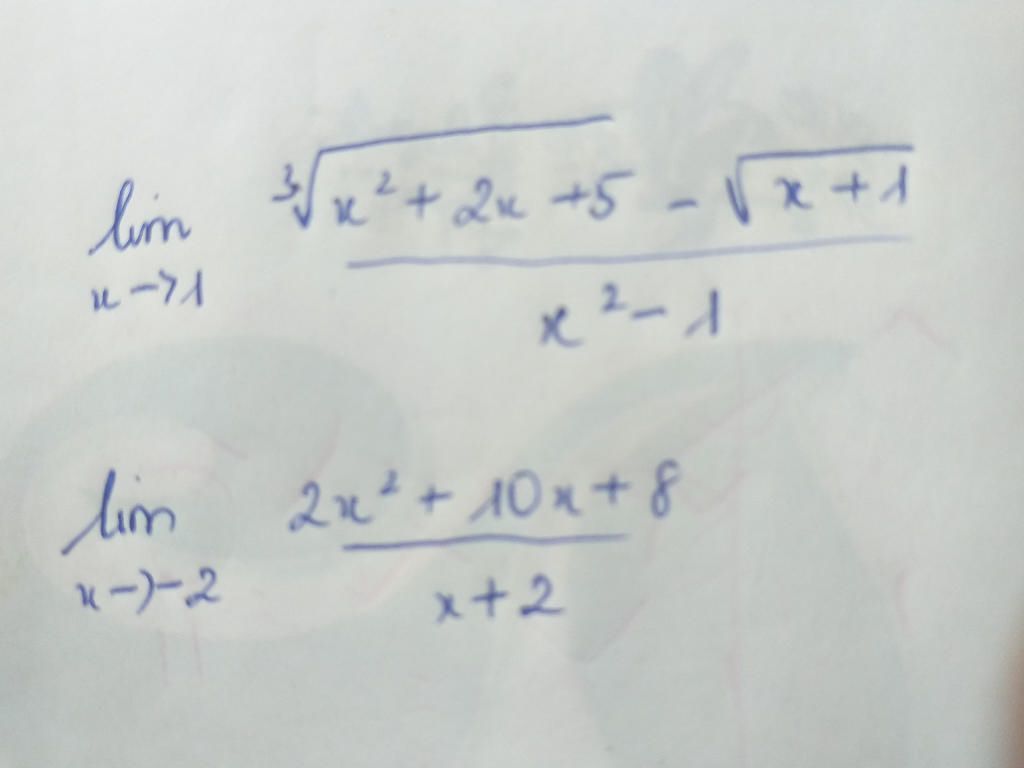 lim x→1 (∛(x² + 2x + 5) - √(x + 1)) / (x² - 1)
lim x→-2 (2x² + 10x + 8) / (x + 2)